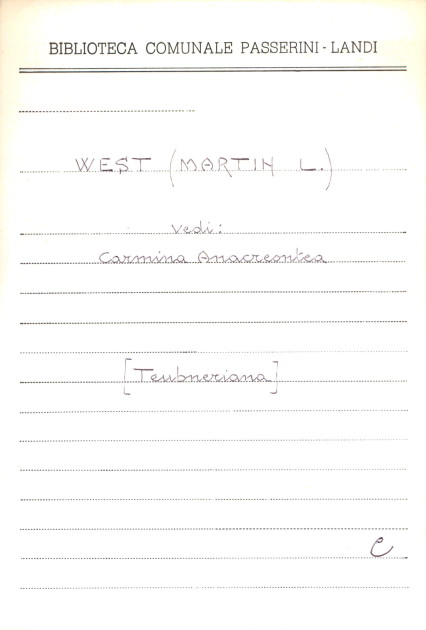 BIBLIOTECA COMUNALE PASSERINI - LANDI
WEST (MARTIN L.)
Vedi:
Carmina Anacreontea
[Teubneriana]
C